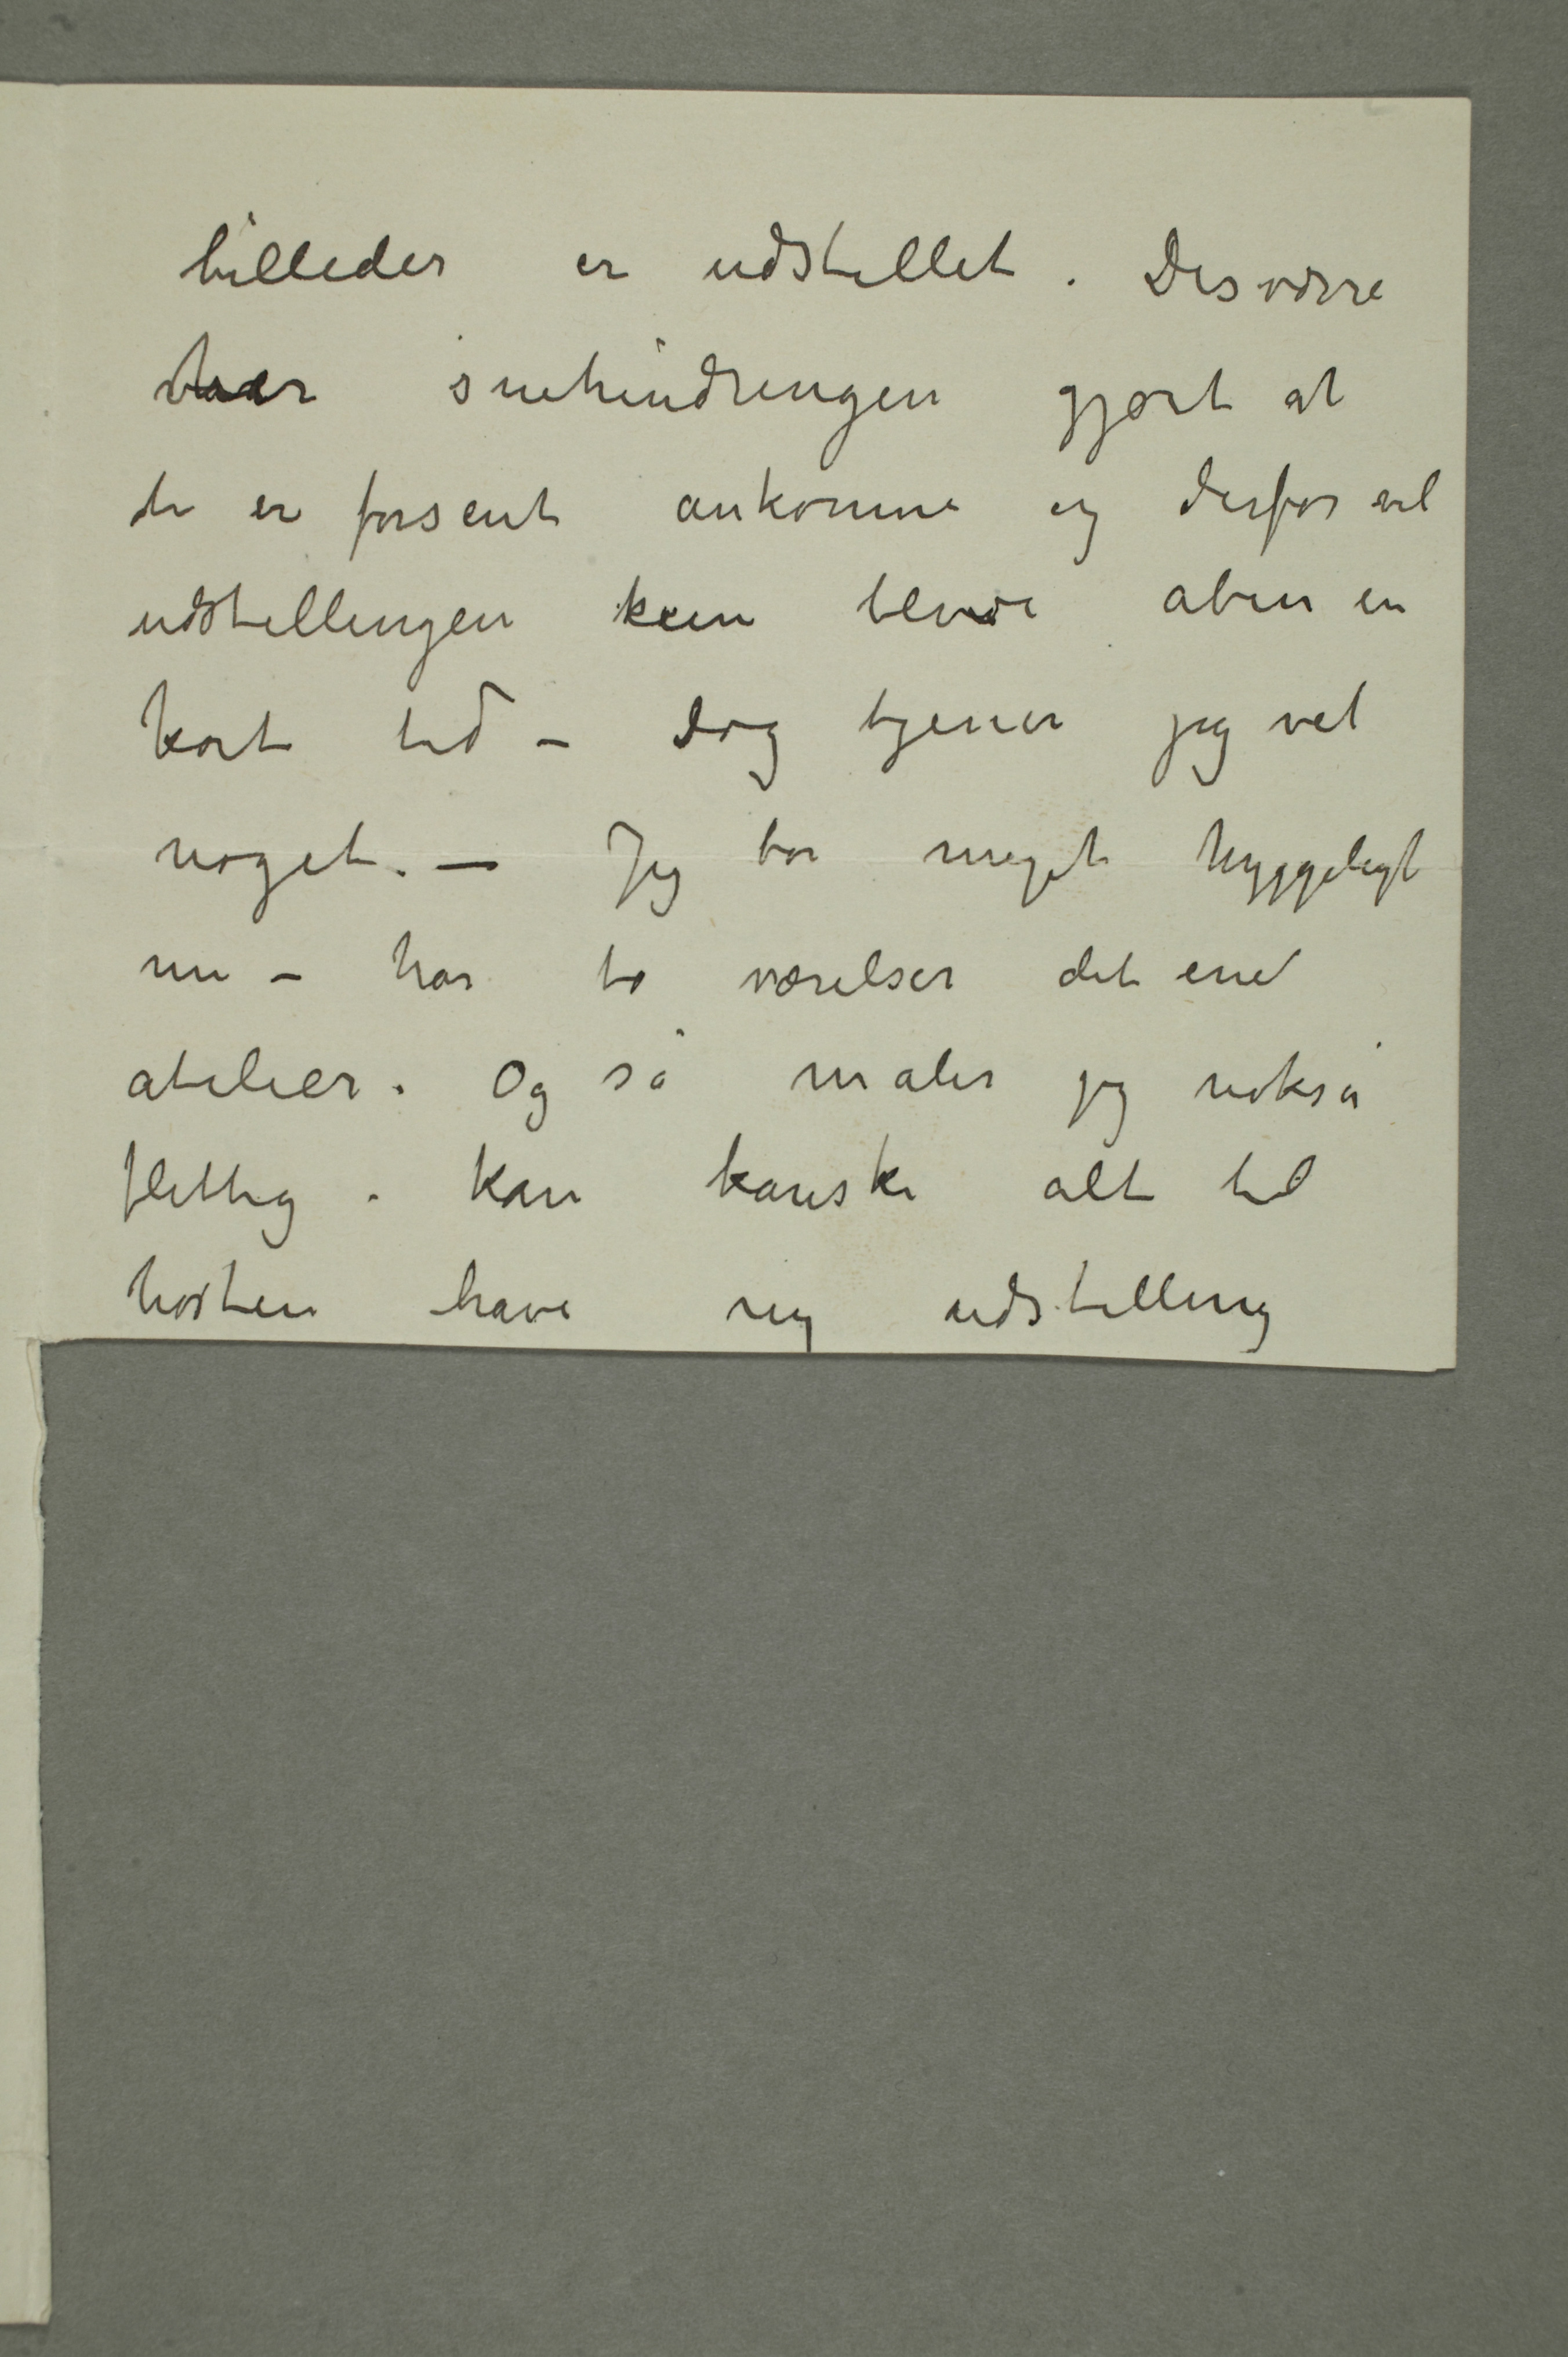 billeder er udstillet. Desværre
har snehindringen gjort at
de er forsent ankomne og derfor vil
udstillingen kun blive åben en
kort tid – dog tjener jeg vel
noget. – Jeg bor meget hyggeligt
nu – har to værelser det ene
atelier. Og så maler jeg nokså
flittig. Kan kanske alt til
høsten have ny udstilling